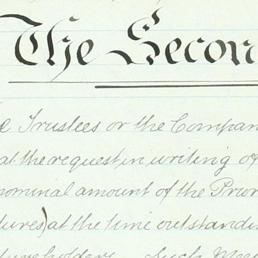 The Secon
e Trustees or the Compan
at the request in writing of
nominal amount of the Prior
tures) at the time outstandi
tureholders Such Mee